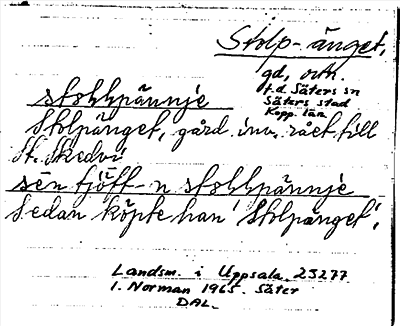 Stolp-änget,
gd, ortn.
t.d. Säters sn
Säters stad
Kopp. län
stollpännje
Stolpänget, gård inv. rået till
St. Skedvi
sēn tjöft-n stollpännje
Sedan köpte han 'Stolpänget'.
Landsm. i Uppsala 23277
I. Norman 1965. Säter
DAL.